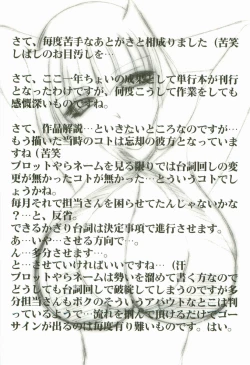 さて、毎度苦手なあとがきと相成りました（苦笑
しばしのお目汚しを…
さて、ここ一年ちょいの成果として単行本が刊行
となったわけですが、何度こうして作業をしても
感慨深いものですね。
さて、作品解説…といきたいところなのですが…
もう描いた当時のコトは忘却の彼方となっていま
すね（苦笑
プロットやらネームを見る限りでは台詞回しの変
更が無かったコトが無かった…というコトでしょ
うかね。
毎月それで担当さんを困らせてたんじゃないかな
？…と、反省。
できるかぎり台詞は決定事項で進行させます。
あ…いや…させる方向で…。
ん…多分させます…。
と…させていければいいですね…（汗
プロットやらネームは勢いを溜めて書く方なので
どうしても台詞回しで破綻してしまうのですが多
分担当さんもボクのそういうアバウトなとこは判
っているようで…流れを掴んで頂けるだけでゴー
サインが出るのは毎度有り難いものです。はい。